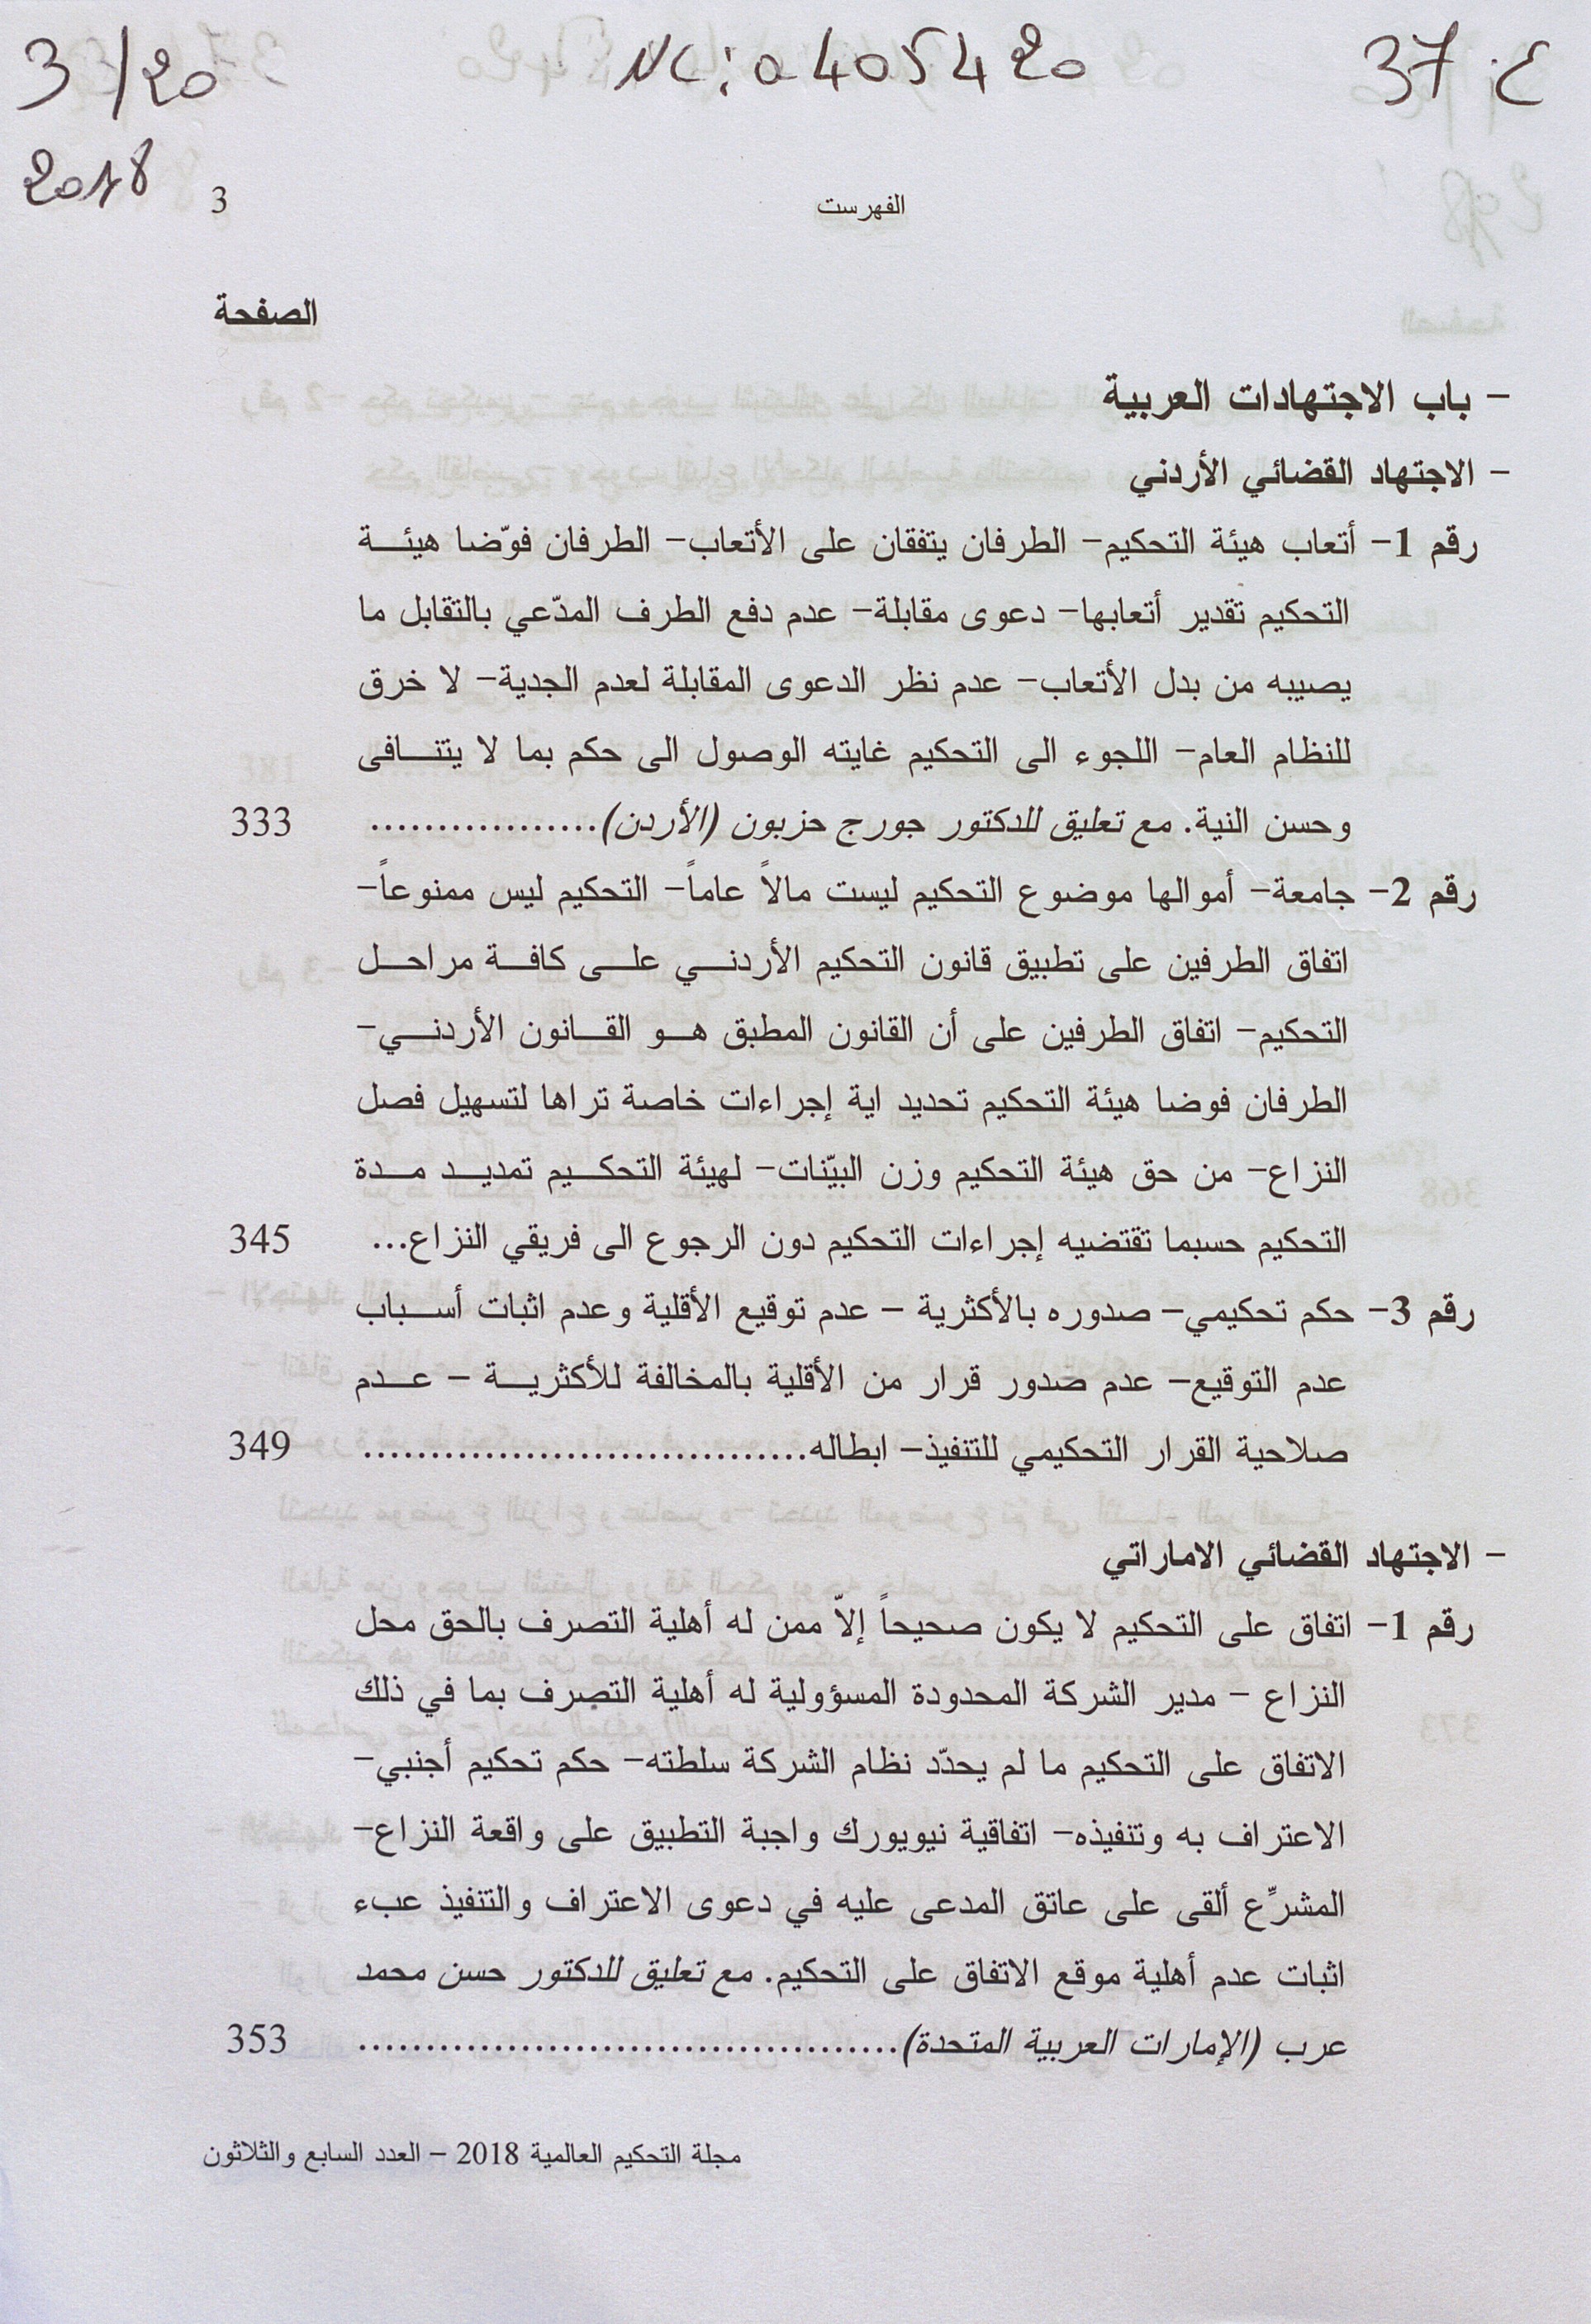 3/20 NC: a405420 37 ع
2018
3 الفهرست
الصفحة
– باب الاجتهادات العربية
– الاجتهاد القضائي الأردني
رقم 1- أتعاب هيئة التحكيم- الطرفان يتفقان على الأتعاب- الطرفان فوّضا هيئة
التحكيم تقدير أتعابها- دعوى مقابلة- عدم دفع الطرف المدّعي بالتقابل ما
يصيبه من بدل الأتعاب- عدم نظر الدعوى المقابلة لعدم الجدية- لا خرق
للنظام العام- اللجوء الى التحكيم غايته الوصول الى حكم بما لا يتنافى
وحسن النية. مع تعليق للدكتور جورج حزبون (الأردن)................. 333
رقم 2- جامعة- أموالها موضوع التحكيم ليست مالاً عاماً- التحكيم ليس ممنوعاً-
اتفاق الطرفين على تطبيق قانون التحكيم الأردني على كافة مراحل
التحكيم- اتفاق الطرفين على أن القانون المطبق هو القانون الأردني-
الطرفان فوضا هيئة التحكيم تحديد اية إجراءات خاصة تراها لتسهيل فصل
النزاع- من حق هيئة التحكيم وزن البيّنات- لهيئة التحكيم تمديد مدة
التحكيم حسبما تقتضيه إجراءات التحكيم دون الرجوع الى فريقي النزاع... 345
رقم 3- حكم تحكيمي- صدوره بالأكثرية – عدم توقيع الأقلية وعدم اثبات أسباب
عدم التوقيع- عدم صدور قرار من الأقلية بالمخالفة للأكثرية – عدم
صلاحية القرار التحكيمي للتنفيذ- ابطاله................................. 349
– الاجتهاد القضائي الاماراتي
رقم 1- اتفاق على التحكيم لا يكون صحيحاً إلاّ ممن له أهلية التصرف بالحق محل
النزاع – مدير الشركة المحدودة المسؤولية له أهلية التصرف بما في ذلك
الاتفاق على التحكيم ما لم يحدّد نظام الشركة سلطته- حكم تحكيم أجنبي-
الاعتراف به وتنفيذه- اتفاقية نيويورك واجبة التطبيق على واقعة النزاع-
المشرِّع ألقى على عاتق المدعى عليه في دعوى الاعتراف والتنفيذ عبء
اثبات عدم أهلية موقع الاتفاق على التحكيم. مع تعليق للدكتور حسن محمد
عرب (الإمارات العربية المتحدة)........................................ 353
مجلة التحكيم العالمية 2018 – العدد السابع والثلاثون